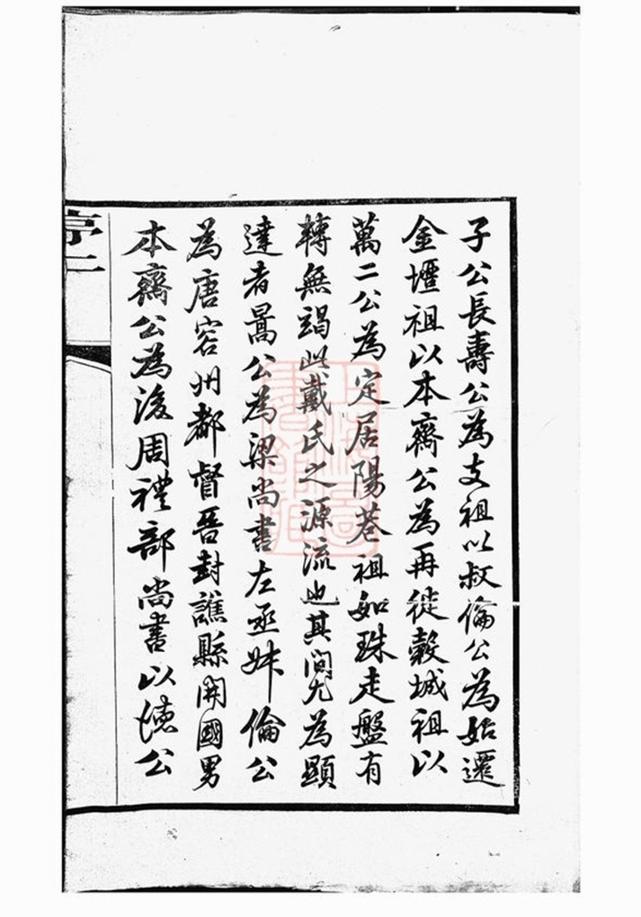 子公長壽公為支祖以叔倫公為始遷
金壇祖以本齋公為再徙穀城祖以
萬二公為定居陽巷祖如珠走盤有
轉無竭此戴氏之源流也其間尤為顯
達者暠公為梁尚書左丞妹倫公
為唐容州都督晉封譙縣開國男
本齋公為後周禮部尚書以德公
序二